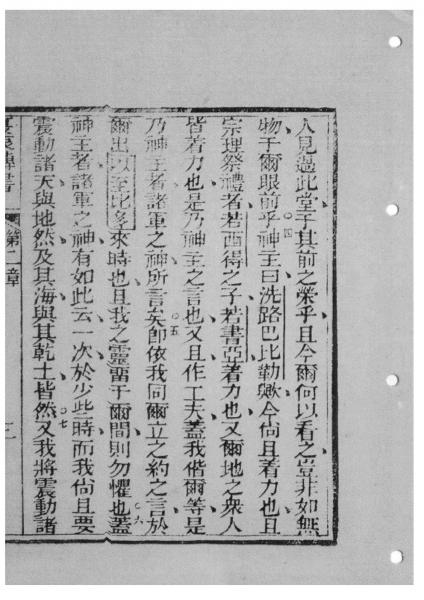 人見過此堂于其前之榮乎且今爾何以看之豈非如無
物于爾眼前乎○四神主曰洗路巴比勒歟今尙且着力也且
宗理祭禮者若西得之子若書亞着力也又爾地之衆人
皆着力也是乃神主之言也又且作工夫蓋我偕爾等是
乃神主者諸軍之神所言矣○五卽依我同爾立之約之言於
爾出以至比多來時也且我之靈畱于爾間則勿懼也○六蓋
神主者諸軍之神有如此云一次於少些時而我尙且要
震動諸天與地然及其海與其乾土皆然○七又我將震動諸
第二章